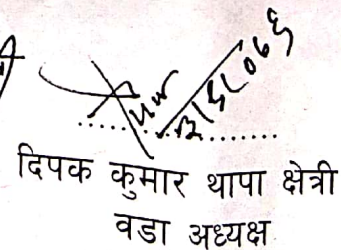 दिपक कुमार थापा क्षेत्री
वडा अध्यक्ष